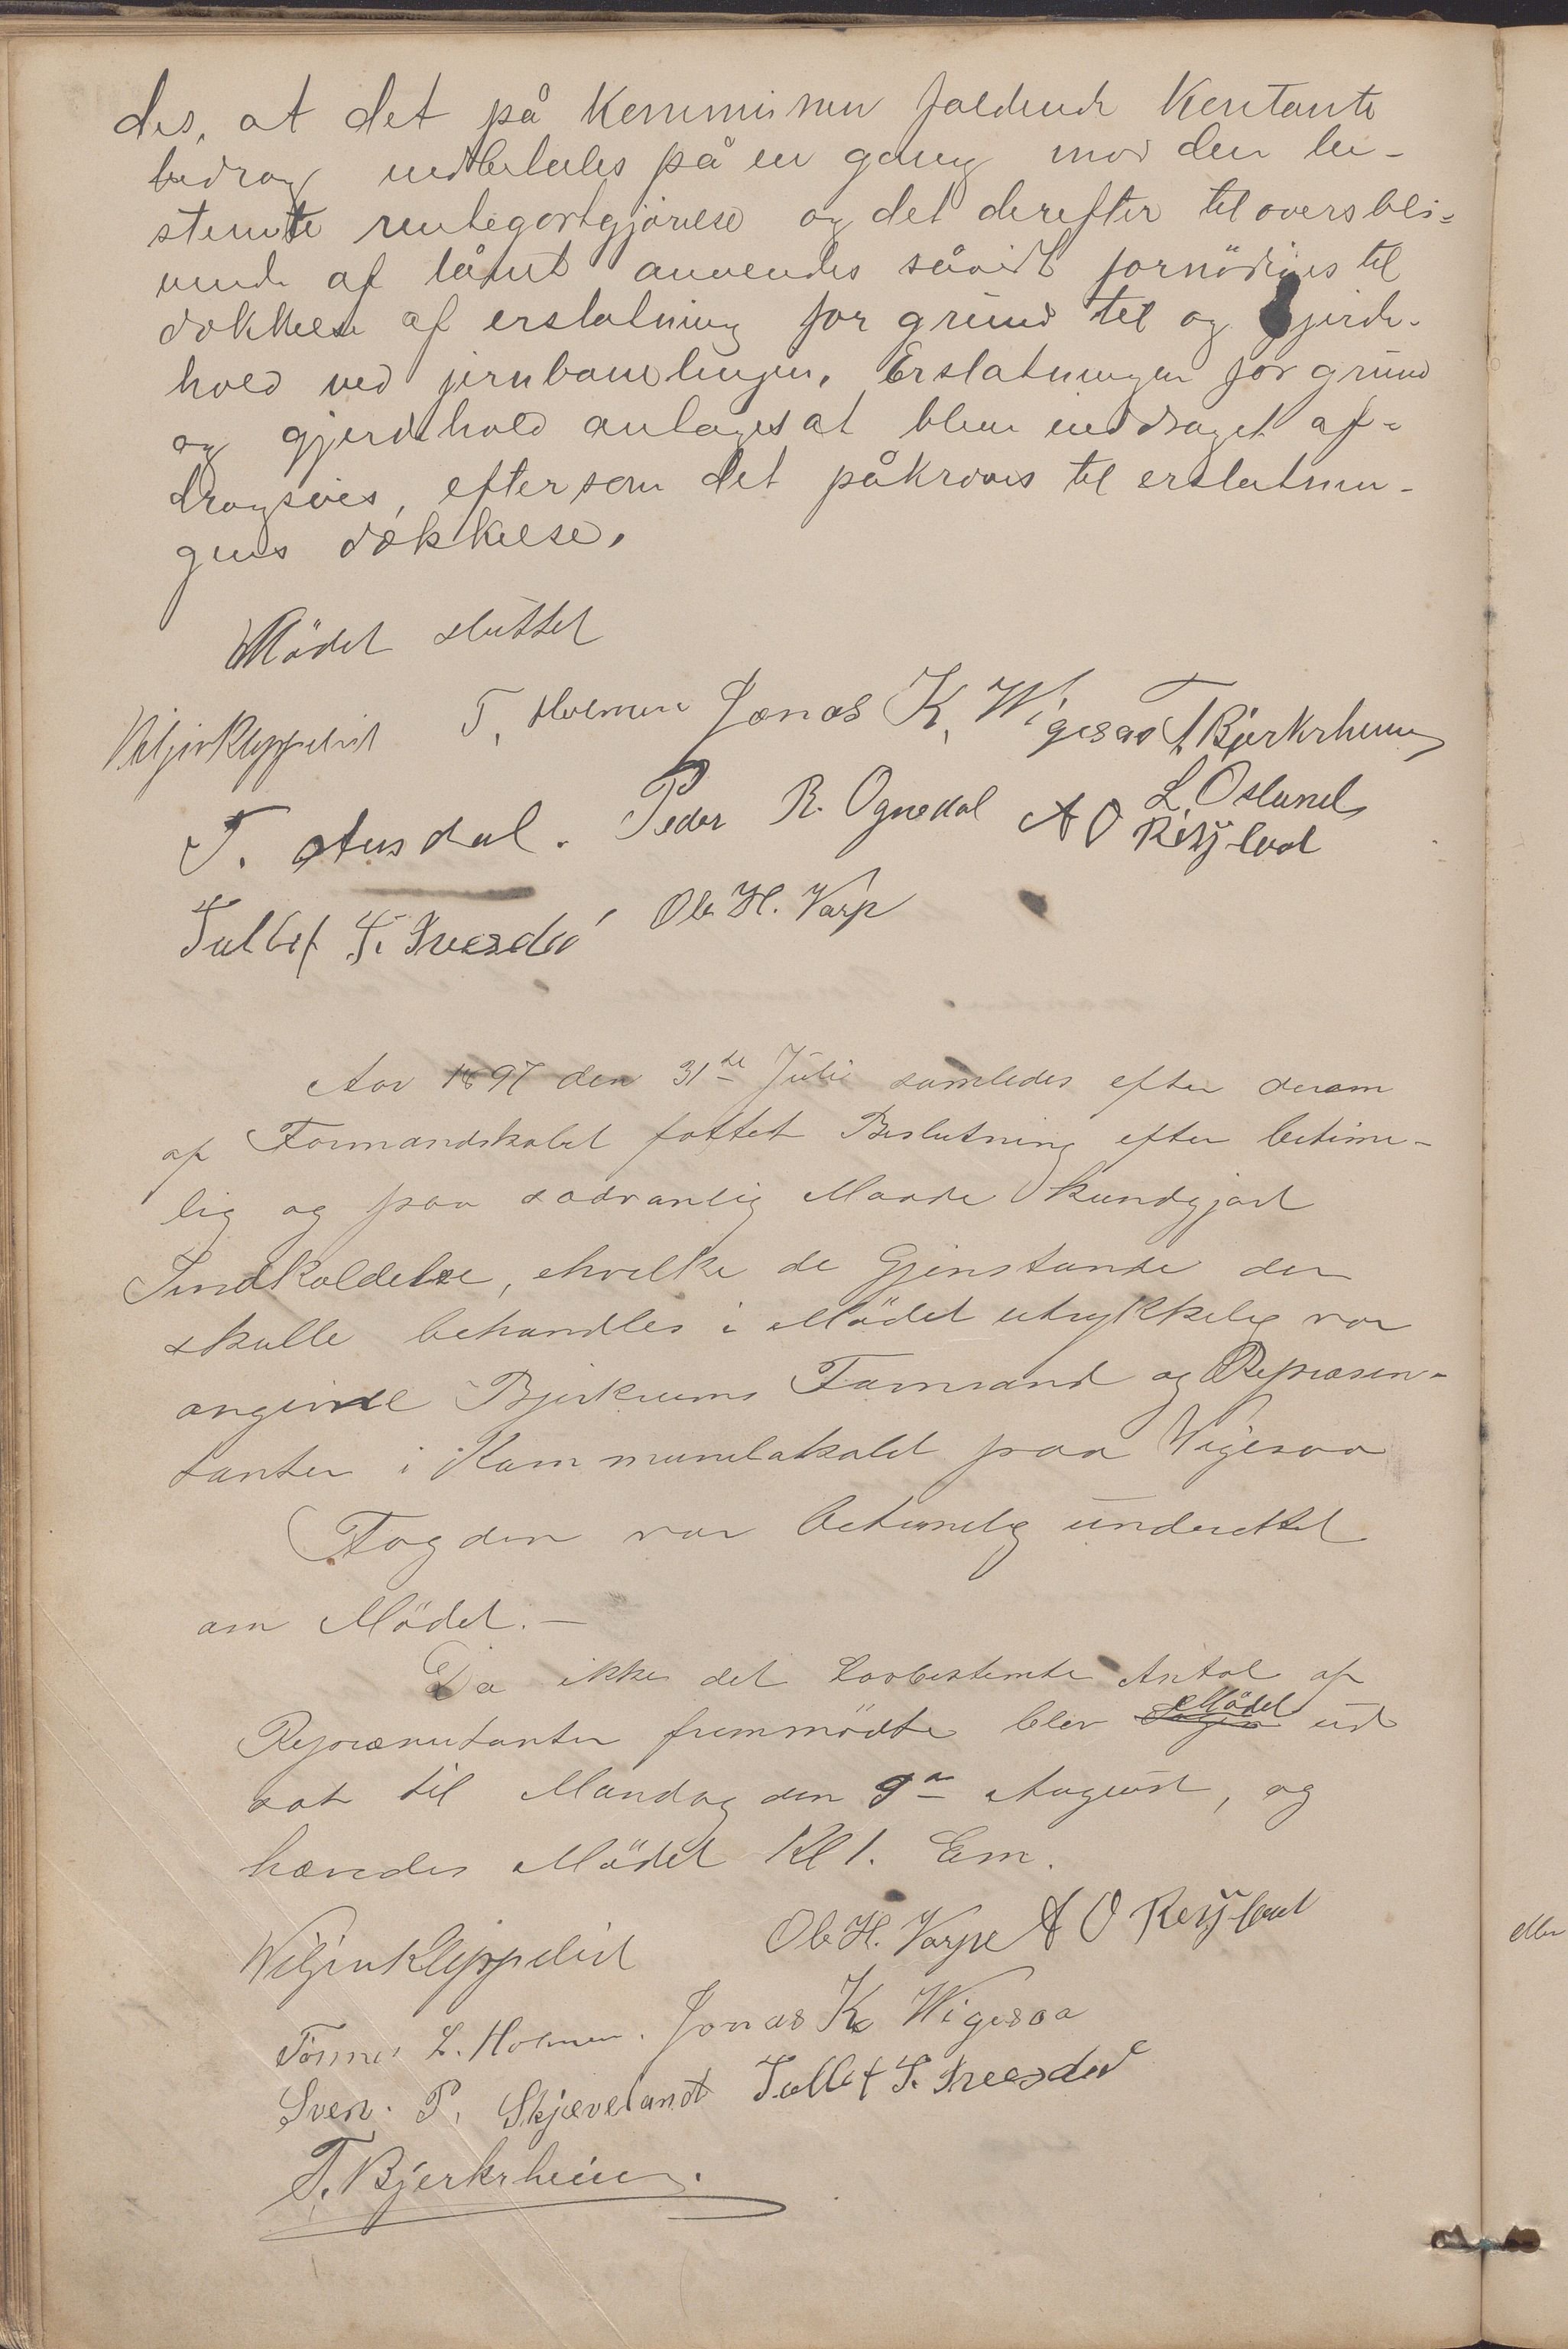 des, at det på Kommunen faldende Kontante
bidrag indbetales på en gang mod den be-
stemte rentegodtgjørelse og det derefter tiloversbli-
vende af lånet anvendes såvidt fornödiges til
dækkelse af erstatning for grund til og gjerde-
hold ved jernbanelinjen. Erstatningen for grund
og gjerdehold antages at blive inddraget af-
dragsvis, eftersom det påkræves til erstatnin-
gens dækkelse.
Mödet sluttet
T. Holmen Jonas K. Wigesaa T Bjerkrheim
T. Ausdal. Peder R. Ognedal A O Röysland
L. Osland
Tallef T. Svesdal Ole H. Varp
Aar 1897 den 31te Juli samledes efter derom
af Formandskabet fattet Beslutning efter betime-
lig og paa sædvanlig Maade kundgjord
Indkaldelse, i hvilke de Gjenstande der
skulle behandles i Mödet utrykkelig var
angivne Bjerkreims Formænd og Repræsen-
tanter i Kommunelokalet paa Vigesaa
Fogden var betimelig underettet
om Mödet. —
Da ikke det Lovbestemte Antal af
Repræsentanter fremmödte blev Mödet ud
sat til Mandag den 9de August, og
hævedes Mödet Kl 1. Em.
Ole H. Varpe A O Röysland
Tönnes L. Holmen. Jonas K. Wigesaa
Sven. P. Skjævelandt Tallef T. Svesdal
T. Bjerkrheim.